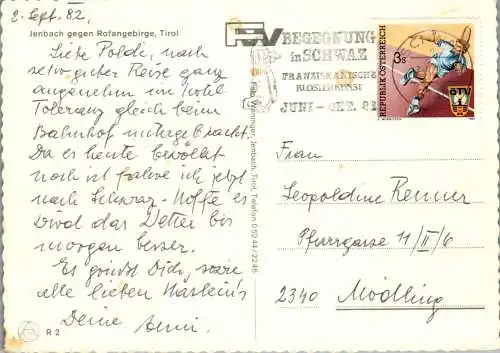 2. Sept. 82,
Jenbach gegen Rofangebirge, Tirol
Liebe Poldi, nach
sehr guter Reise ganz
angenehm im Hotel
Toleranz gleich beim
Bahnhof untergebracht.
Da es heute bewölkt
noch ist fahre ich jetzt
nach Schwaz - Hoffe es
wird das Wetter bis
morgen besser.
Es grüßt Dich, sowie
alle lieben
Deine
R 2
Jenbach, Tirol, Telefon 0 52 44 / 22 45
BEGEGNUNG
in SCHWAZ
FRANZISKANISCHE
KLOSTERKUNST
JUNI - OKT. 82
3 S
REPUBLIK ÖSTERREICH
ÖTV
Frau
Leopoldine Renner
Pfarrgasse 11/II/6
2340 Mödling